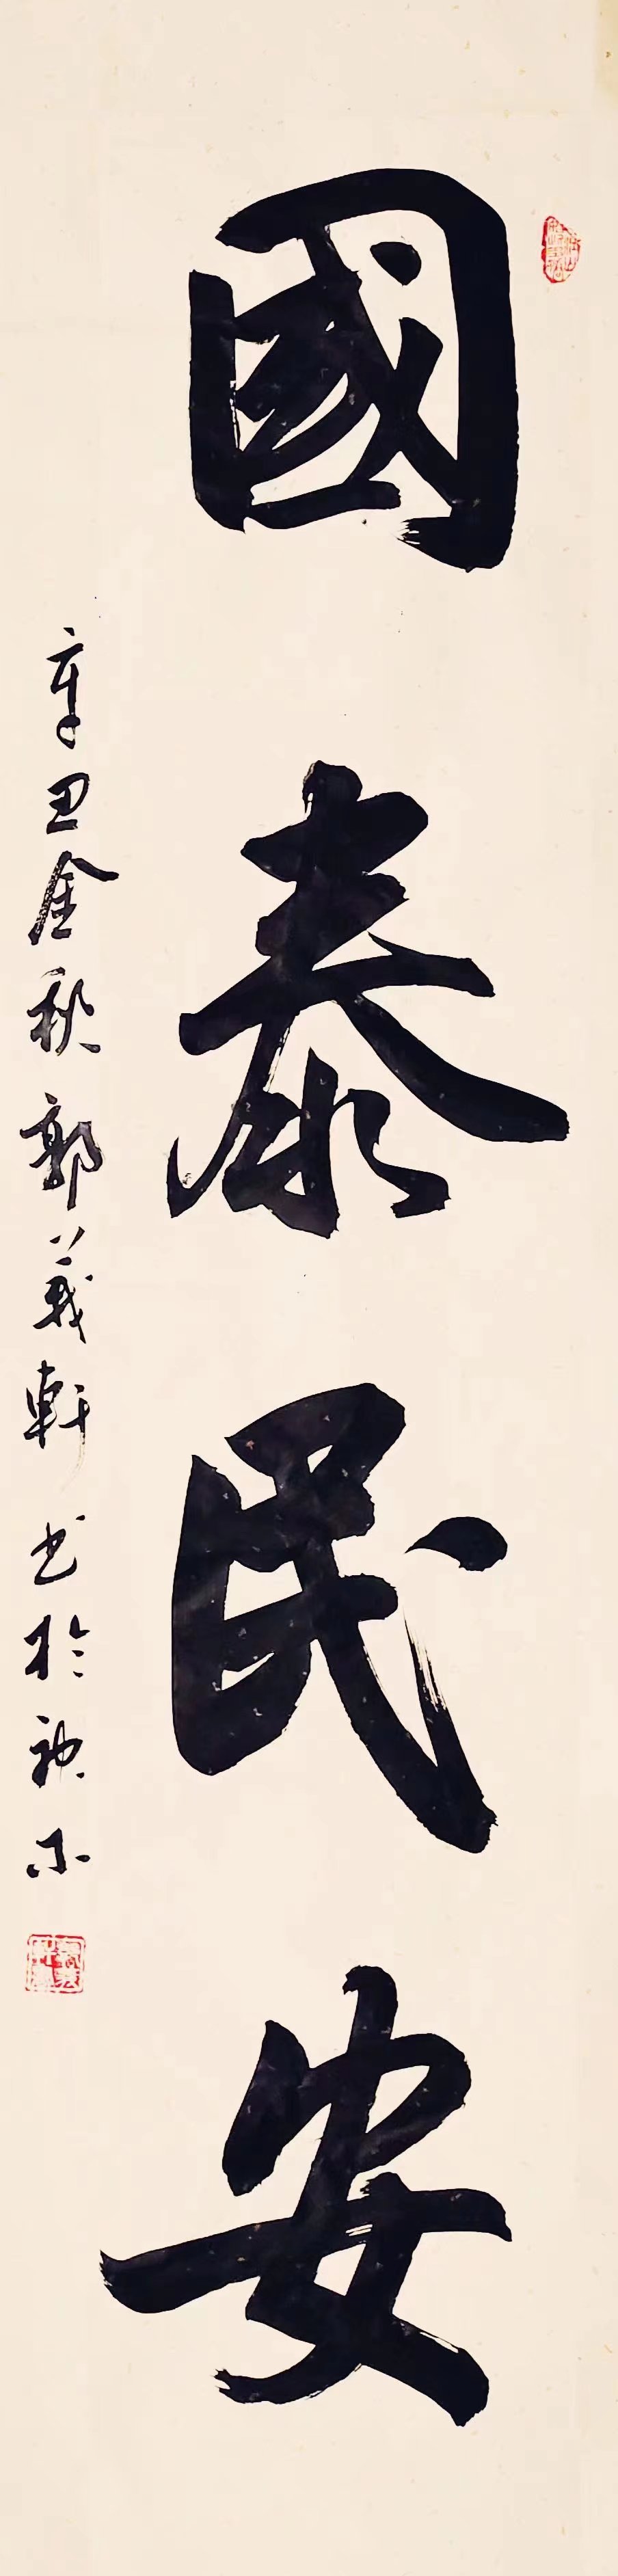 國泰民安
辛丑金秋郭義軒书於京